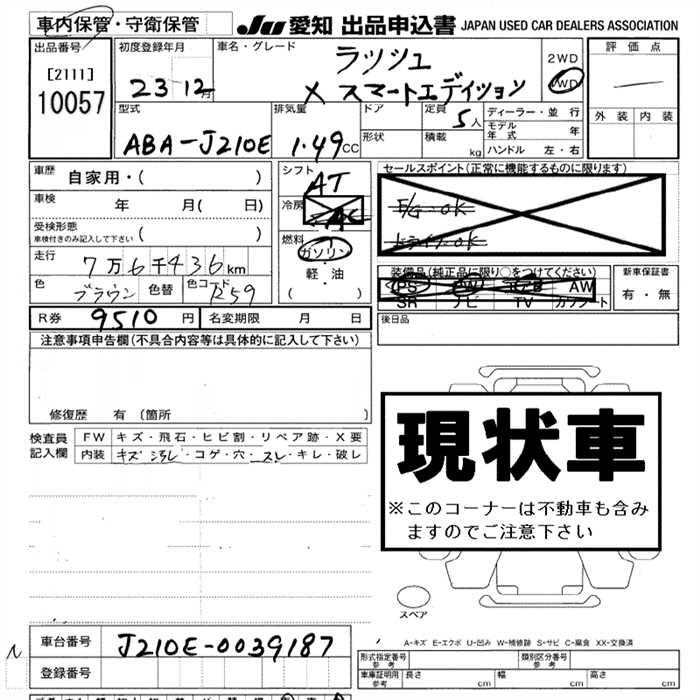 車内保管・守衛保管 JU 愛知 出品申込書 JAPAN USED CAR DEALERS ASSOCIATION
出品番号 初度登録年月 車名・グレード 評価点
[2111] 10057 23 12月 ラッシュ 2WD
X スマートエディション 4WD
外装 内装
型式 排気量 ドア 定員 5人 ディーラー・並行
ABA-J210E 1.49cc 形状 積載 kg モデル年式 年
ハンドル 左・右
車歴 自家用・( ) シフト AT セールスポイント(正常に機能するものに限ります)
車検 年 月( 日) 冷房 AC E/G=OK
受検形態 ( ) 車検付きのみ記入して下さい 燃料 ガソリン ミライクOK
走行 7万6千436km 軽・油 装備品(純正品に限り○をつけてください) 新車保証書
色 ブラウン 色替 色コード R59 ( ) PS PW AW 有・無
SR ナビ TV カワシート
R券 9510円 名変期限 月 日 後日品
注意事項申告欄(不具合内容等は具体的に記入して下さい)
修復歴 有 (箇所 )
検査員記入欄 FW キズ・飛石・ヒビ割・リペア跡・X要
内装 キズ 汚レ・コゲ・穴・スレ・キレ・破レ
現状車
※このコーナーは不動車も含み
ますのでご注意下さい
スペア
A-キズ E-エクボ U-凹み W-補修跡 S-サビ C-腐食 XX-交換済
車台番号 J210E-0039187
登録番号
形式指定番号 参考 類別区分番号 参考
車庫証明用 参考 長さ cm 幅 cm 高さ cm